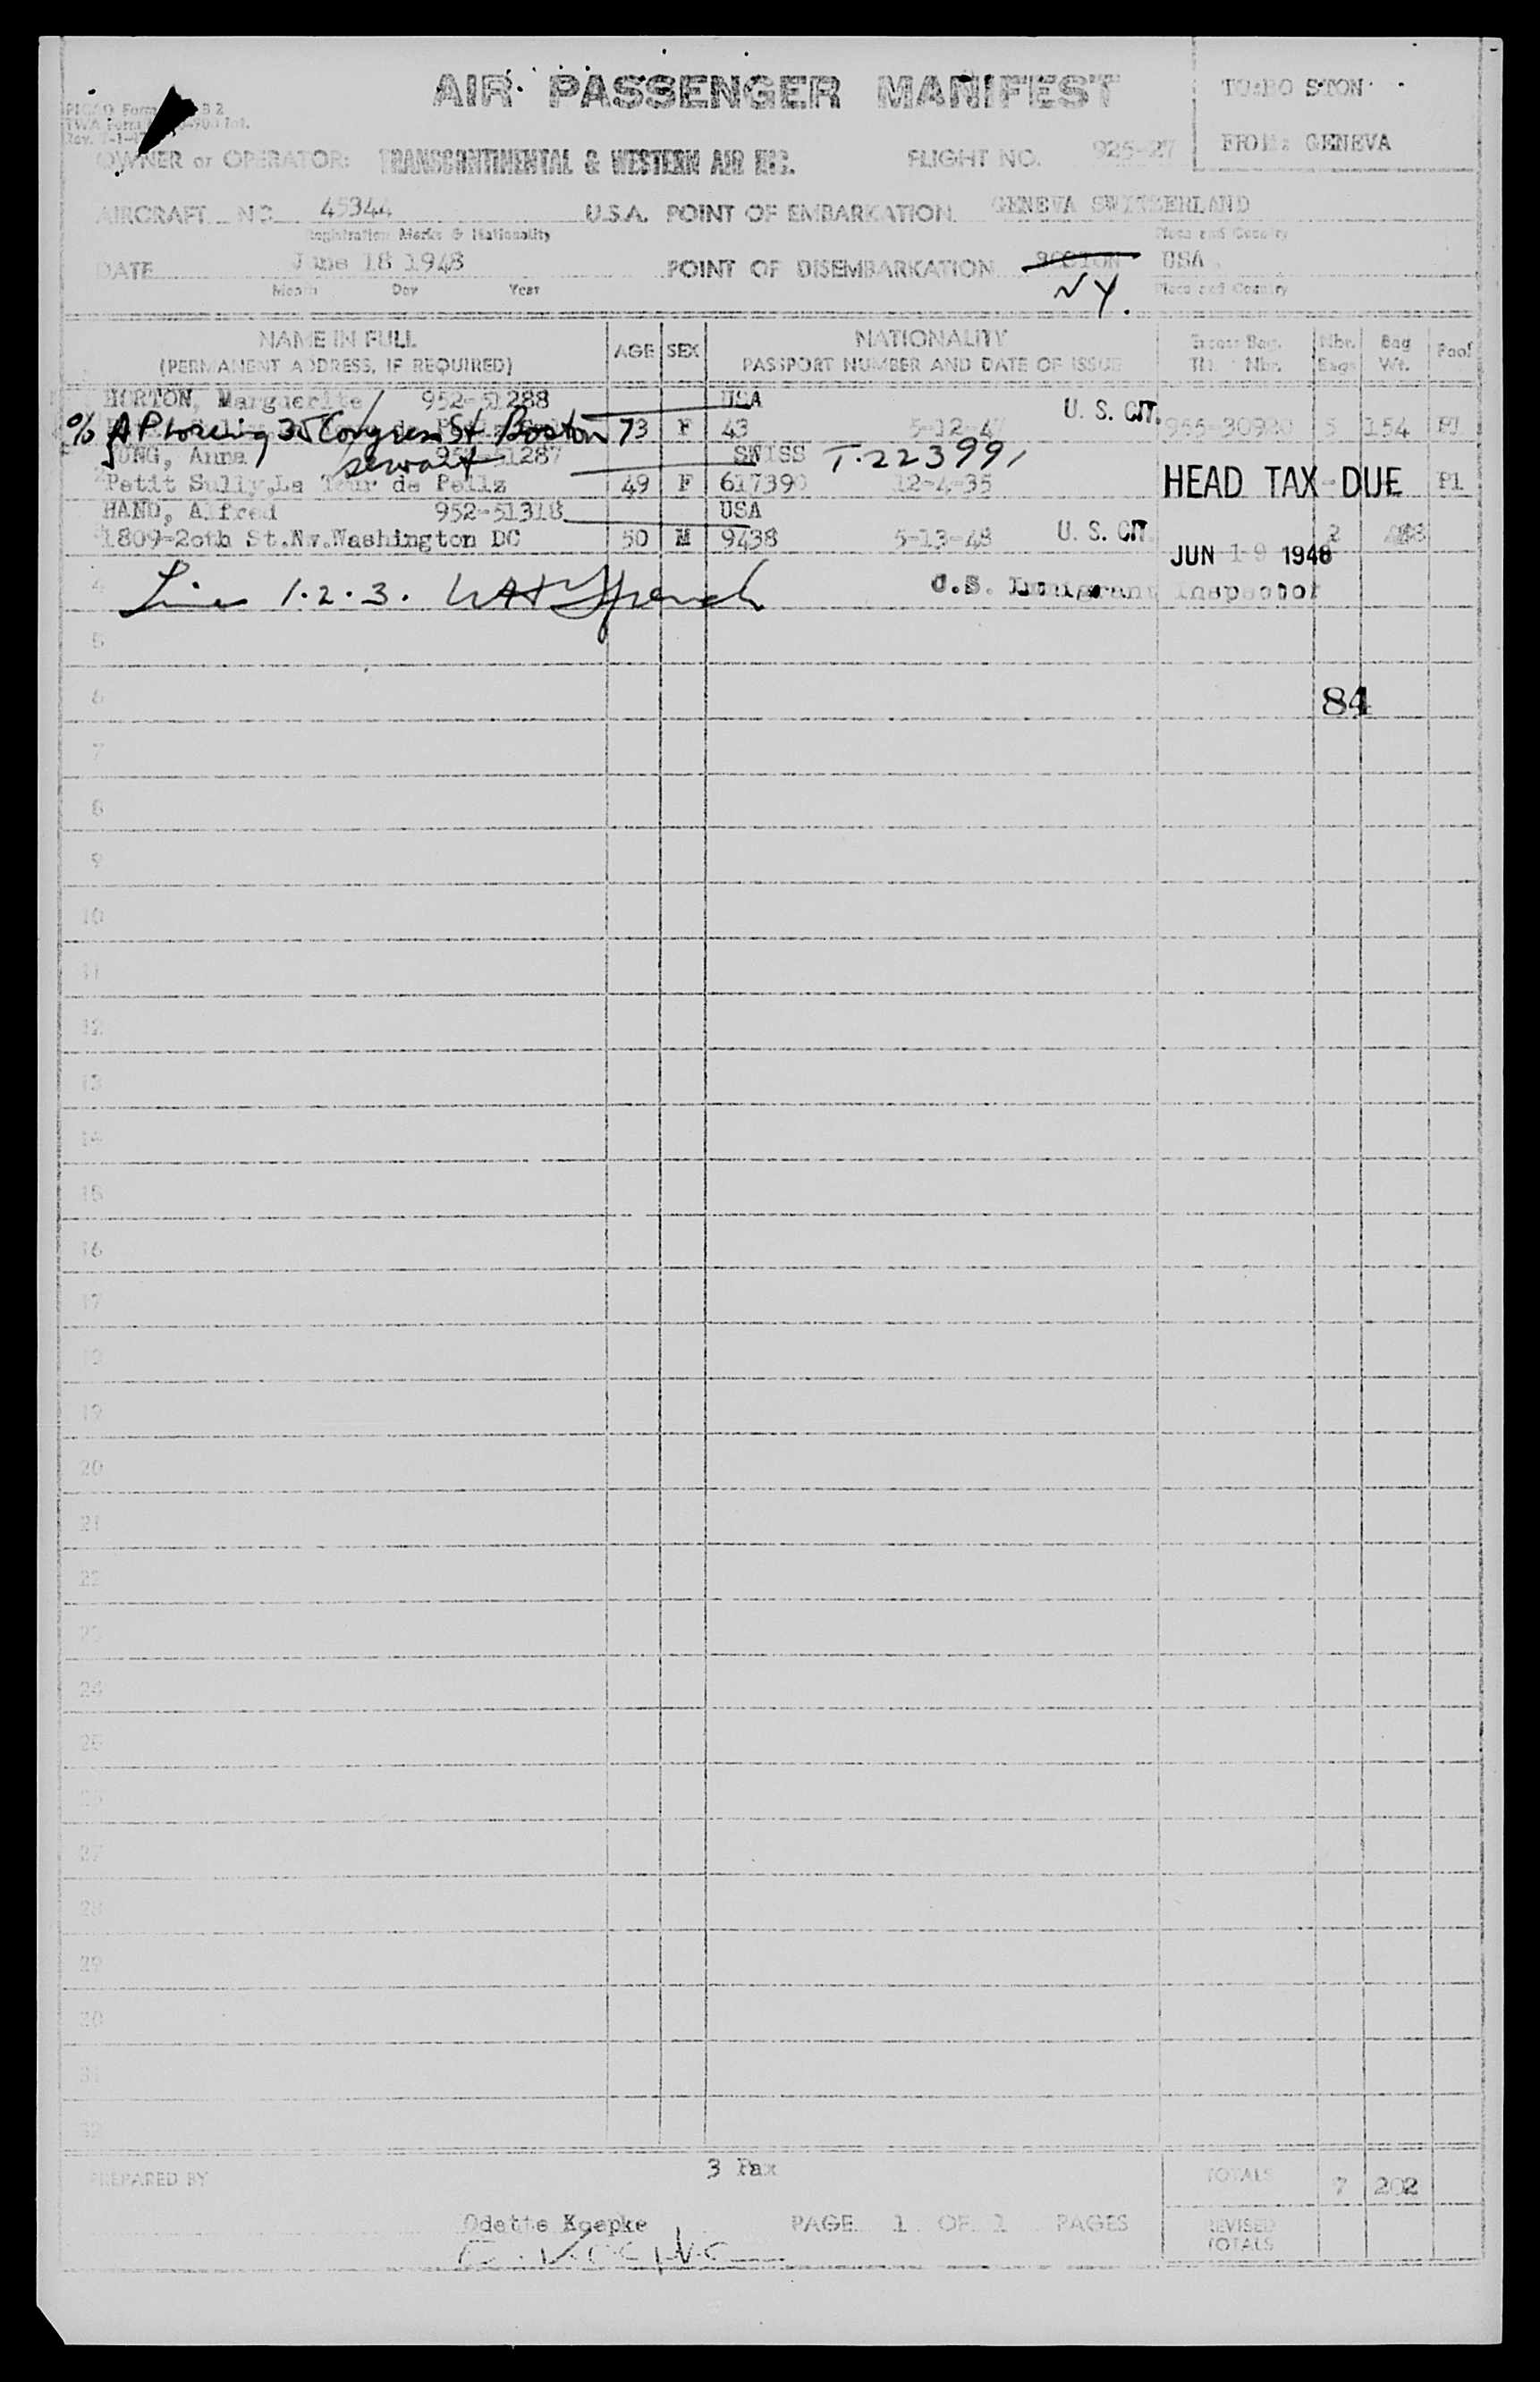 AIR PASSENGER MANIFEST
TO: BOSTON
FROM: GENEVA
OWNER or OPERATOR: TRANSCONTINENTAL & WESTERN AIR INC. FLIGHT NO. 925-27
AIRCRAFT NC 45344 U.S.A. POINT OF EMBARKATION GENEVA SWITZERLAND
Registration Marks & Nationality Place and Country
DATE June 18 1948 POINT OF DISEMBARKATION BOSTON USA
NY.
Month Day Year Place and Country
NAME IN FULL AGE SEX NATIONALITY Excess Bag. Nbr. Bag
(PERMANENT ADDRESS, IF REQUIRED) PASSPORT NUMBER AND DATE OF ISSUE Nbr. Bags Wt.
HORTON, Marguerite 952-51288 USA U. S. CIT.
% A P Loring 35 Congress St Boston 73 F 43 5-12-47 5 154
JUNG, Anna 952-51287 SWISS T-223991
servant
Petit Sully, La Tour de Peilz 49 F 617390 12-4-35 HEAD TAX DUE
HAND, Alfred 952-51318 USA
1809-20th St.Nw.Washington DC 50 M 9438 5-13-48 U. S. CIT. 2
JUN 19 1948
4 Line 1.2.3. U.S. Immigrant Inspector
5
6 84
7
8
9
10
11
12
13
14
15
16
17
18
19
20
21
22
23
24
25
26
27
28
29
30
31
32
3 Pax
PREPARED BY TOTALS 7 202
Odette Koepke PAGE 1 OF 1 PAGES REVISED
TOTALS